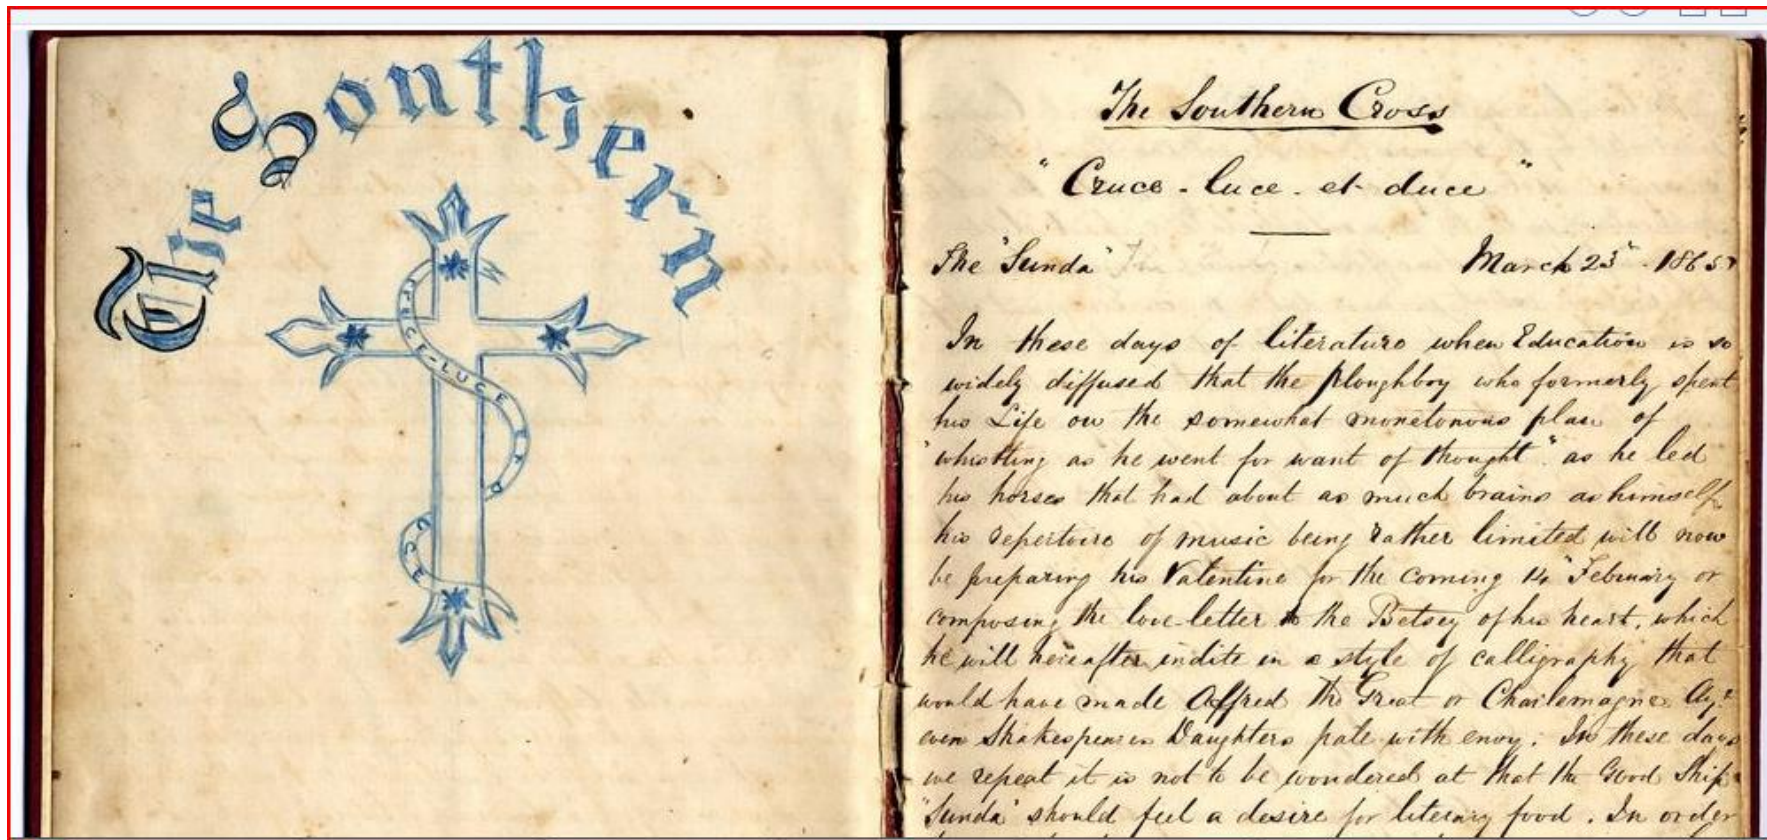 The Southern
CRUCE-LUCE ET D
UCE
The Southern Cross
"Cruce - luce - et - duce"
The "Sunda" March 23 - 1865
In these days of literature when Education is so
widely diffused that the ploughboy who formerly spent
his Life on the somewhat monotonous plan of
"whistling as he went for want of thought" as he led
his horses that had about as much brains as himself
his repertoire of music being rather limited will now
be preparing his Valentine for the coming 14 February or
composing the love-letter to the Betsey of his heart, which
he will hereafter indite in a style of calligraphy that
would have made Alfred the Great or Charlemagne Ay
even Shakespeares Daughters pale with envy. In these days
we repeat it is not to be wondered at that the Good Ship
"Sunda" should feel a desire for literary food. In order